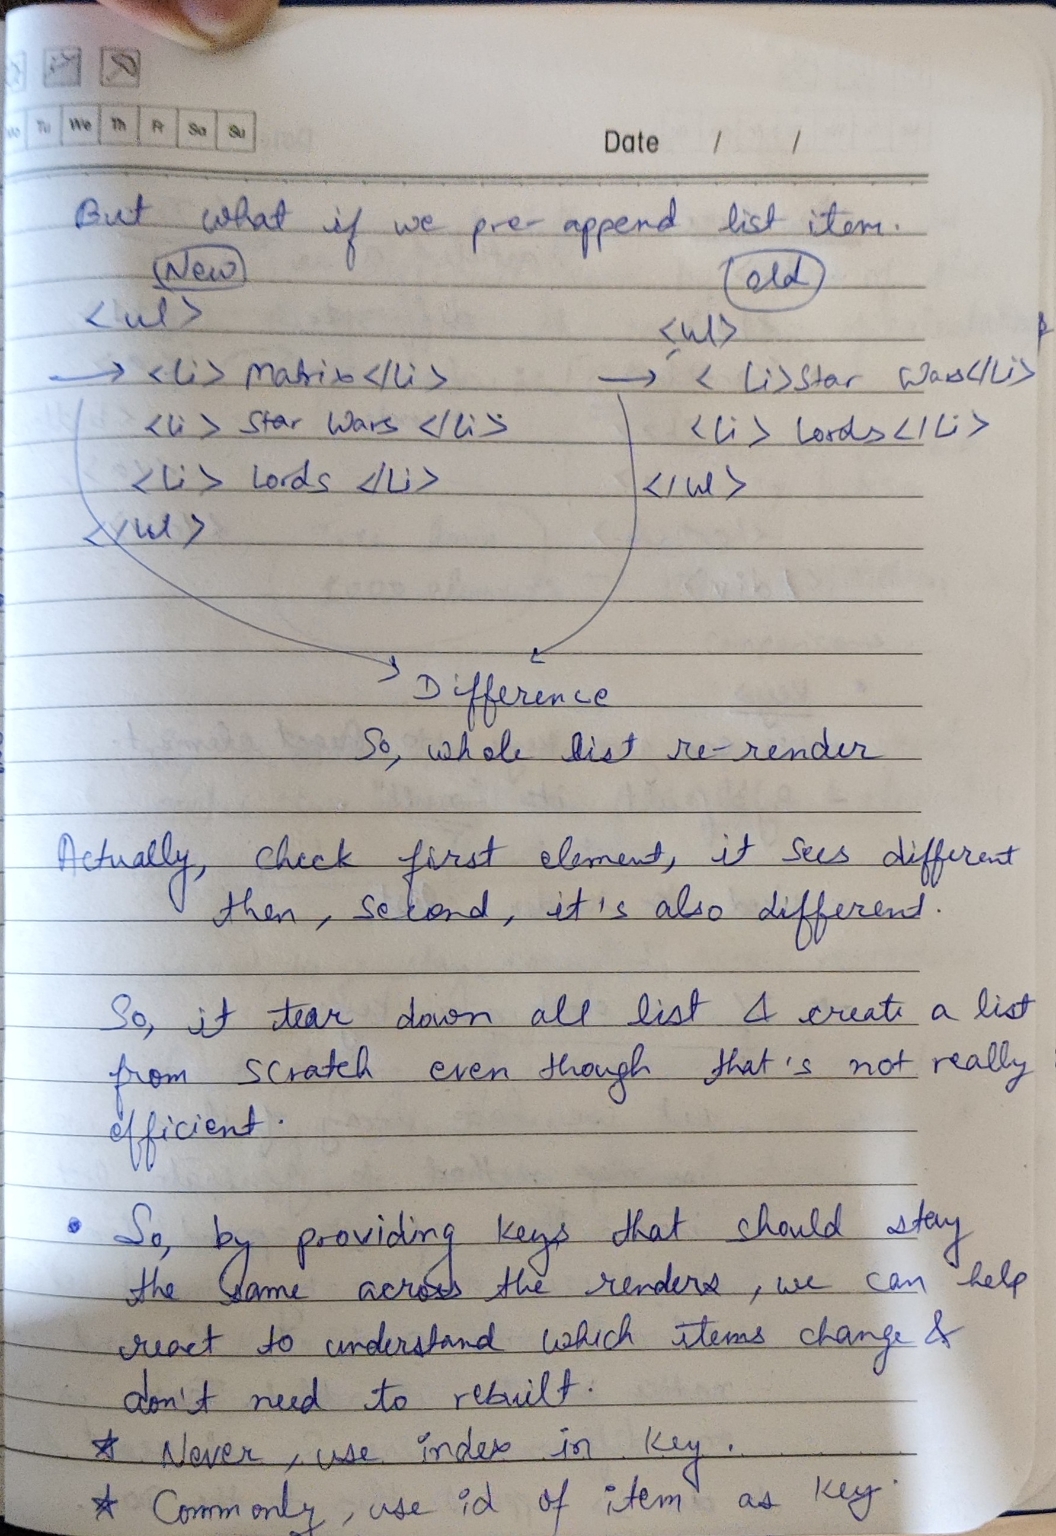 Tu We Th Fr Sa Su
Date / /
But what if we pre-append list item.
New old
<ul> <ul>
→ <li> Matrix </li> → < li>Star Wars</li>
<li> Star Wars </li> <li> Lords </li>
<li> Lords </li> </ul>
</ul>
Difference
So, whole list re-render
Actually, check first element, it sees different
then, second, it's also different.
So, it tear down all list & create a list
from scratch even though that's not really
efficient.
• So, by providing keys that should stay
the same across the renders, we can help
react to understand which items change &
don't need to rebuilt.
* Never, use index in key.
* Commonly, use id of item as key.